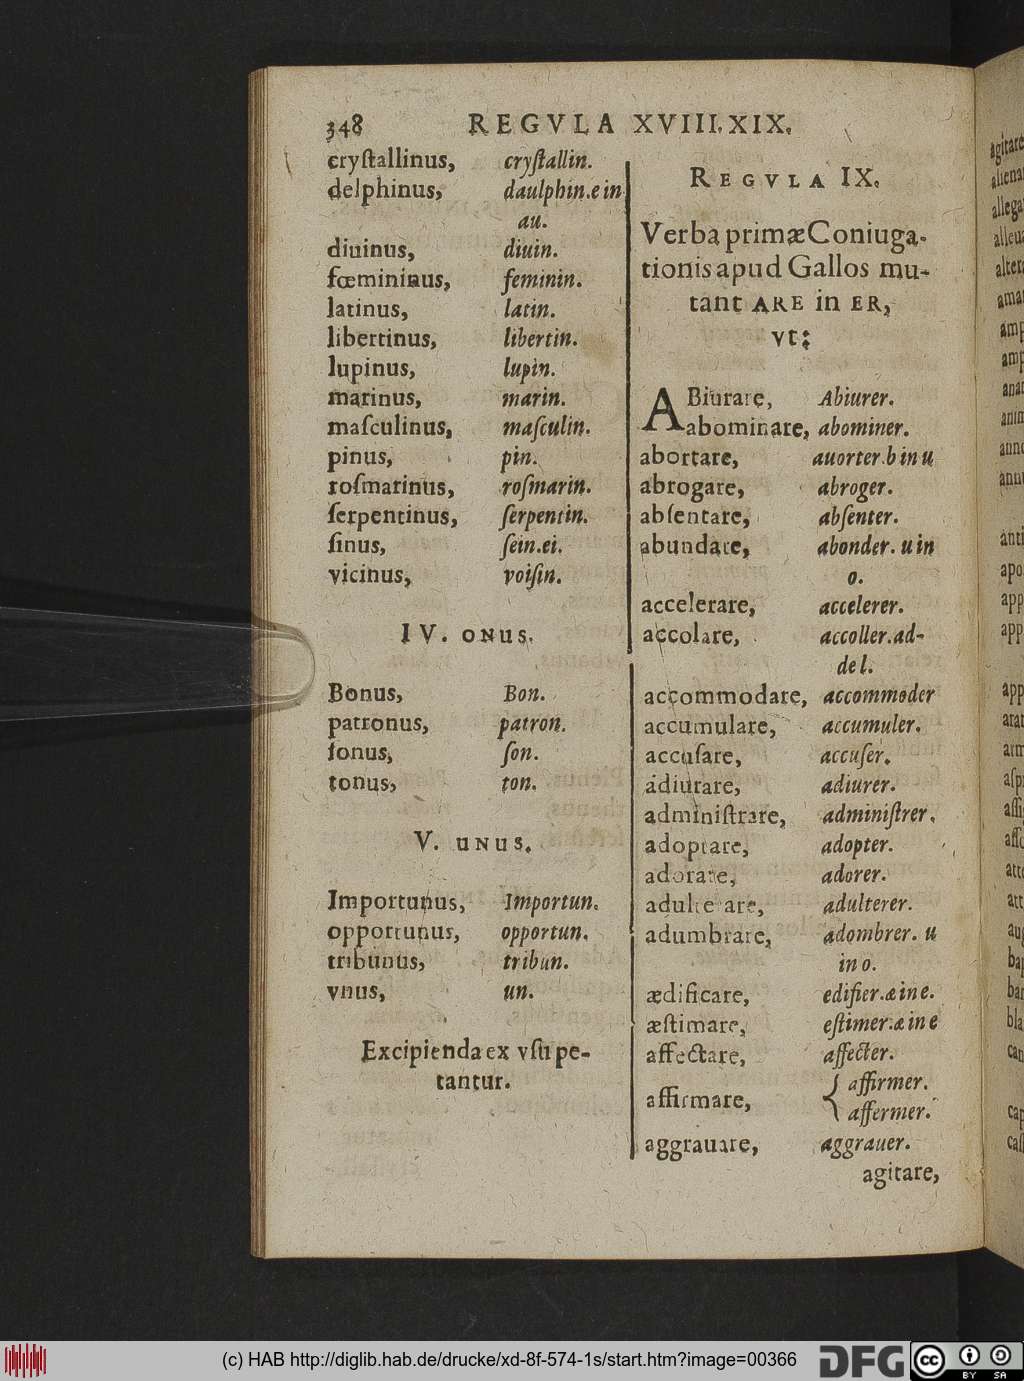 348 REGVLA XVIII. XIX.
cryſtallinus, cryſtallin.
delphinus, daulphin. e in
au.
diuinus, diuin.
fœmininus, feminin.
latinus, latin.
libertinus, libertin.
lupinus, lupin.
marinus, marin.
maſculinus, maſculin.
pinus, pin.
roſmarinus, roſmarin.
ſerpentinus, ſerpentin.
ſinus, ſein. ei.
vicinus, voiſin.
IV. ONUS.
Bonus, Bon.
patronus, patron.
ſonus, ſon.
tonus, ton.
V. UNUS.
Importunus, Importun.
opportunus, opportun.
tribunus, tribun.
vnus, un.
Excipienda ex vſu pe-
tantur.
REGVLA IX.
Verba primæ Coniuga-
tionis apud Gallos mu-
tant ARE in ER,
vt:
ABiurare, Abiurer.
abominare, abominer.
abortare, auorter. b in u
abrogare, abroger.
abſentare, abſenter.
abundare, abonder. u in
o.
accelerare, accelerer.
accolare, accoller. ad-
de l.
accommodare, accommoder
accumulare, accumuler.
accuſare, accuſer.
adiurare, adiurer.
adminiſtrare, adminiſtrer.
adoptare, adopter.
adorare, adorer.
adulterare, adulterer.
adumbrare, adombrer. u
in o.
ædificare, edifier. æ in e.
æſtimare, eſtimer. æ in e
affectare, affecter.
affirmare, { affirmer.
affermer.
aggrauare, aggrauer.
agitare,
(c) HAB http://diglib.hab.de/drucke/xd-8f-574-1s/start.htm?image=00366
DFG
cc BY SA